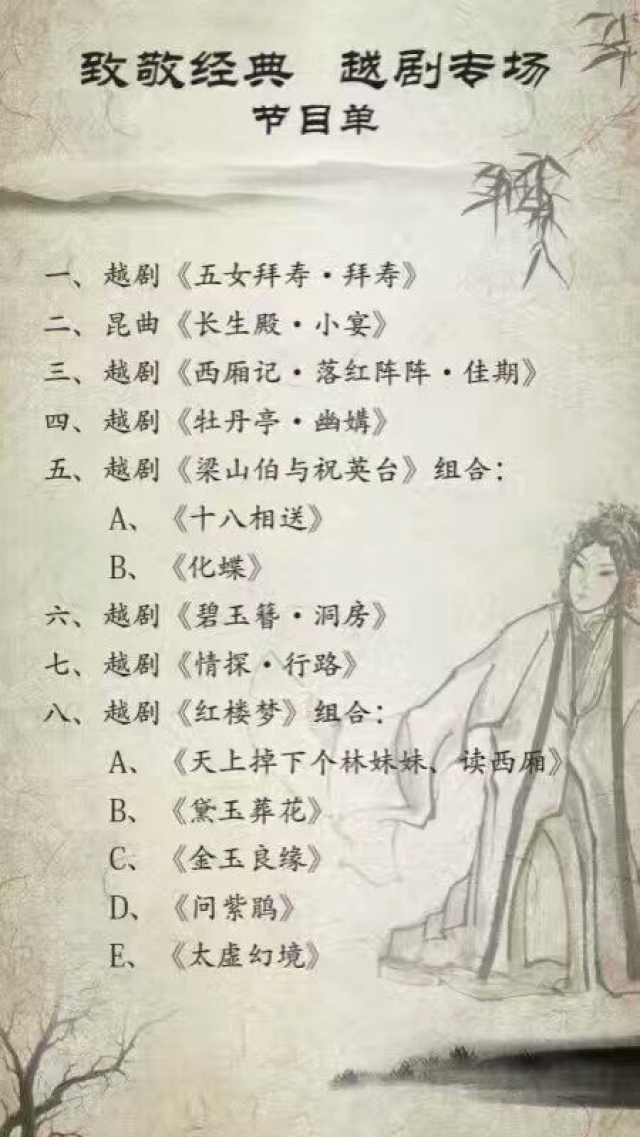 致敬经典 越剧专场
节目单
一、越剧《五女拜寿·拜寿》
二、昆曲《长生殿·小宴》
三、越剧《西厢记·落红阵阵·佳期》
四、越剧《牡丹亭·幽媾》
五、越剧《梁山伯与祝英台》组合：
A、《十八相送》
B、《化蝶》
六、越剧《碧玉簪·洞房》
七、越剧《情探·行路》
八、越剧《红楼梦》组合：
A、《天上掉下个林妹妹、读西厢》
B、《黛玉葬花》
C、《金玉良缘》
D、《问紫鹃》
E、《太虚幻境》